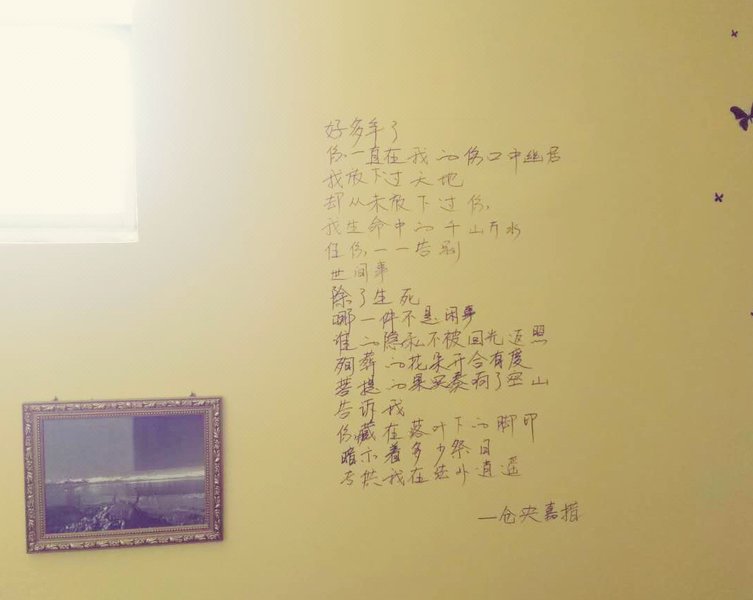 好多年了
你一直在我的伤口中幽居
我放下过天地
却从未放下过你
我生命中的千山万水
任你一一告别
世间事
除了生死
哪一件不是闲事
谁的隐私不被回光返照
殉葬的花朵开合有度
菩提的果实奏响了空山
告诉我
你藏在落叶下的脚印
暗示着多少祭日
专供我在法外逍遥
—仓央嘉措